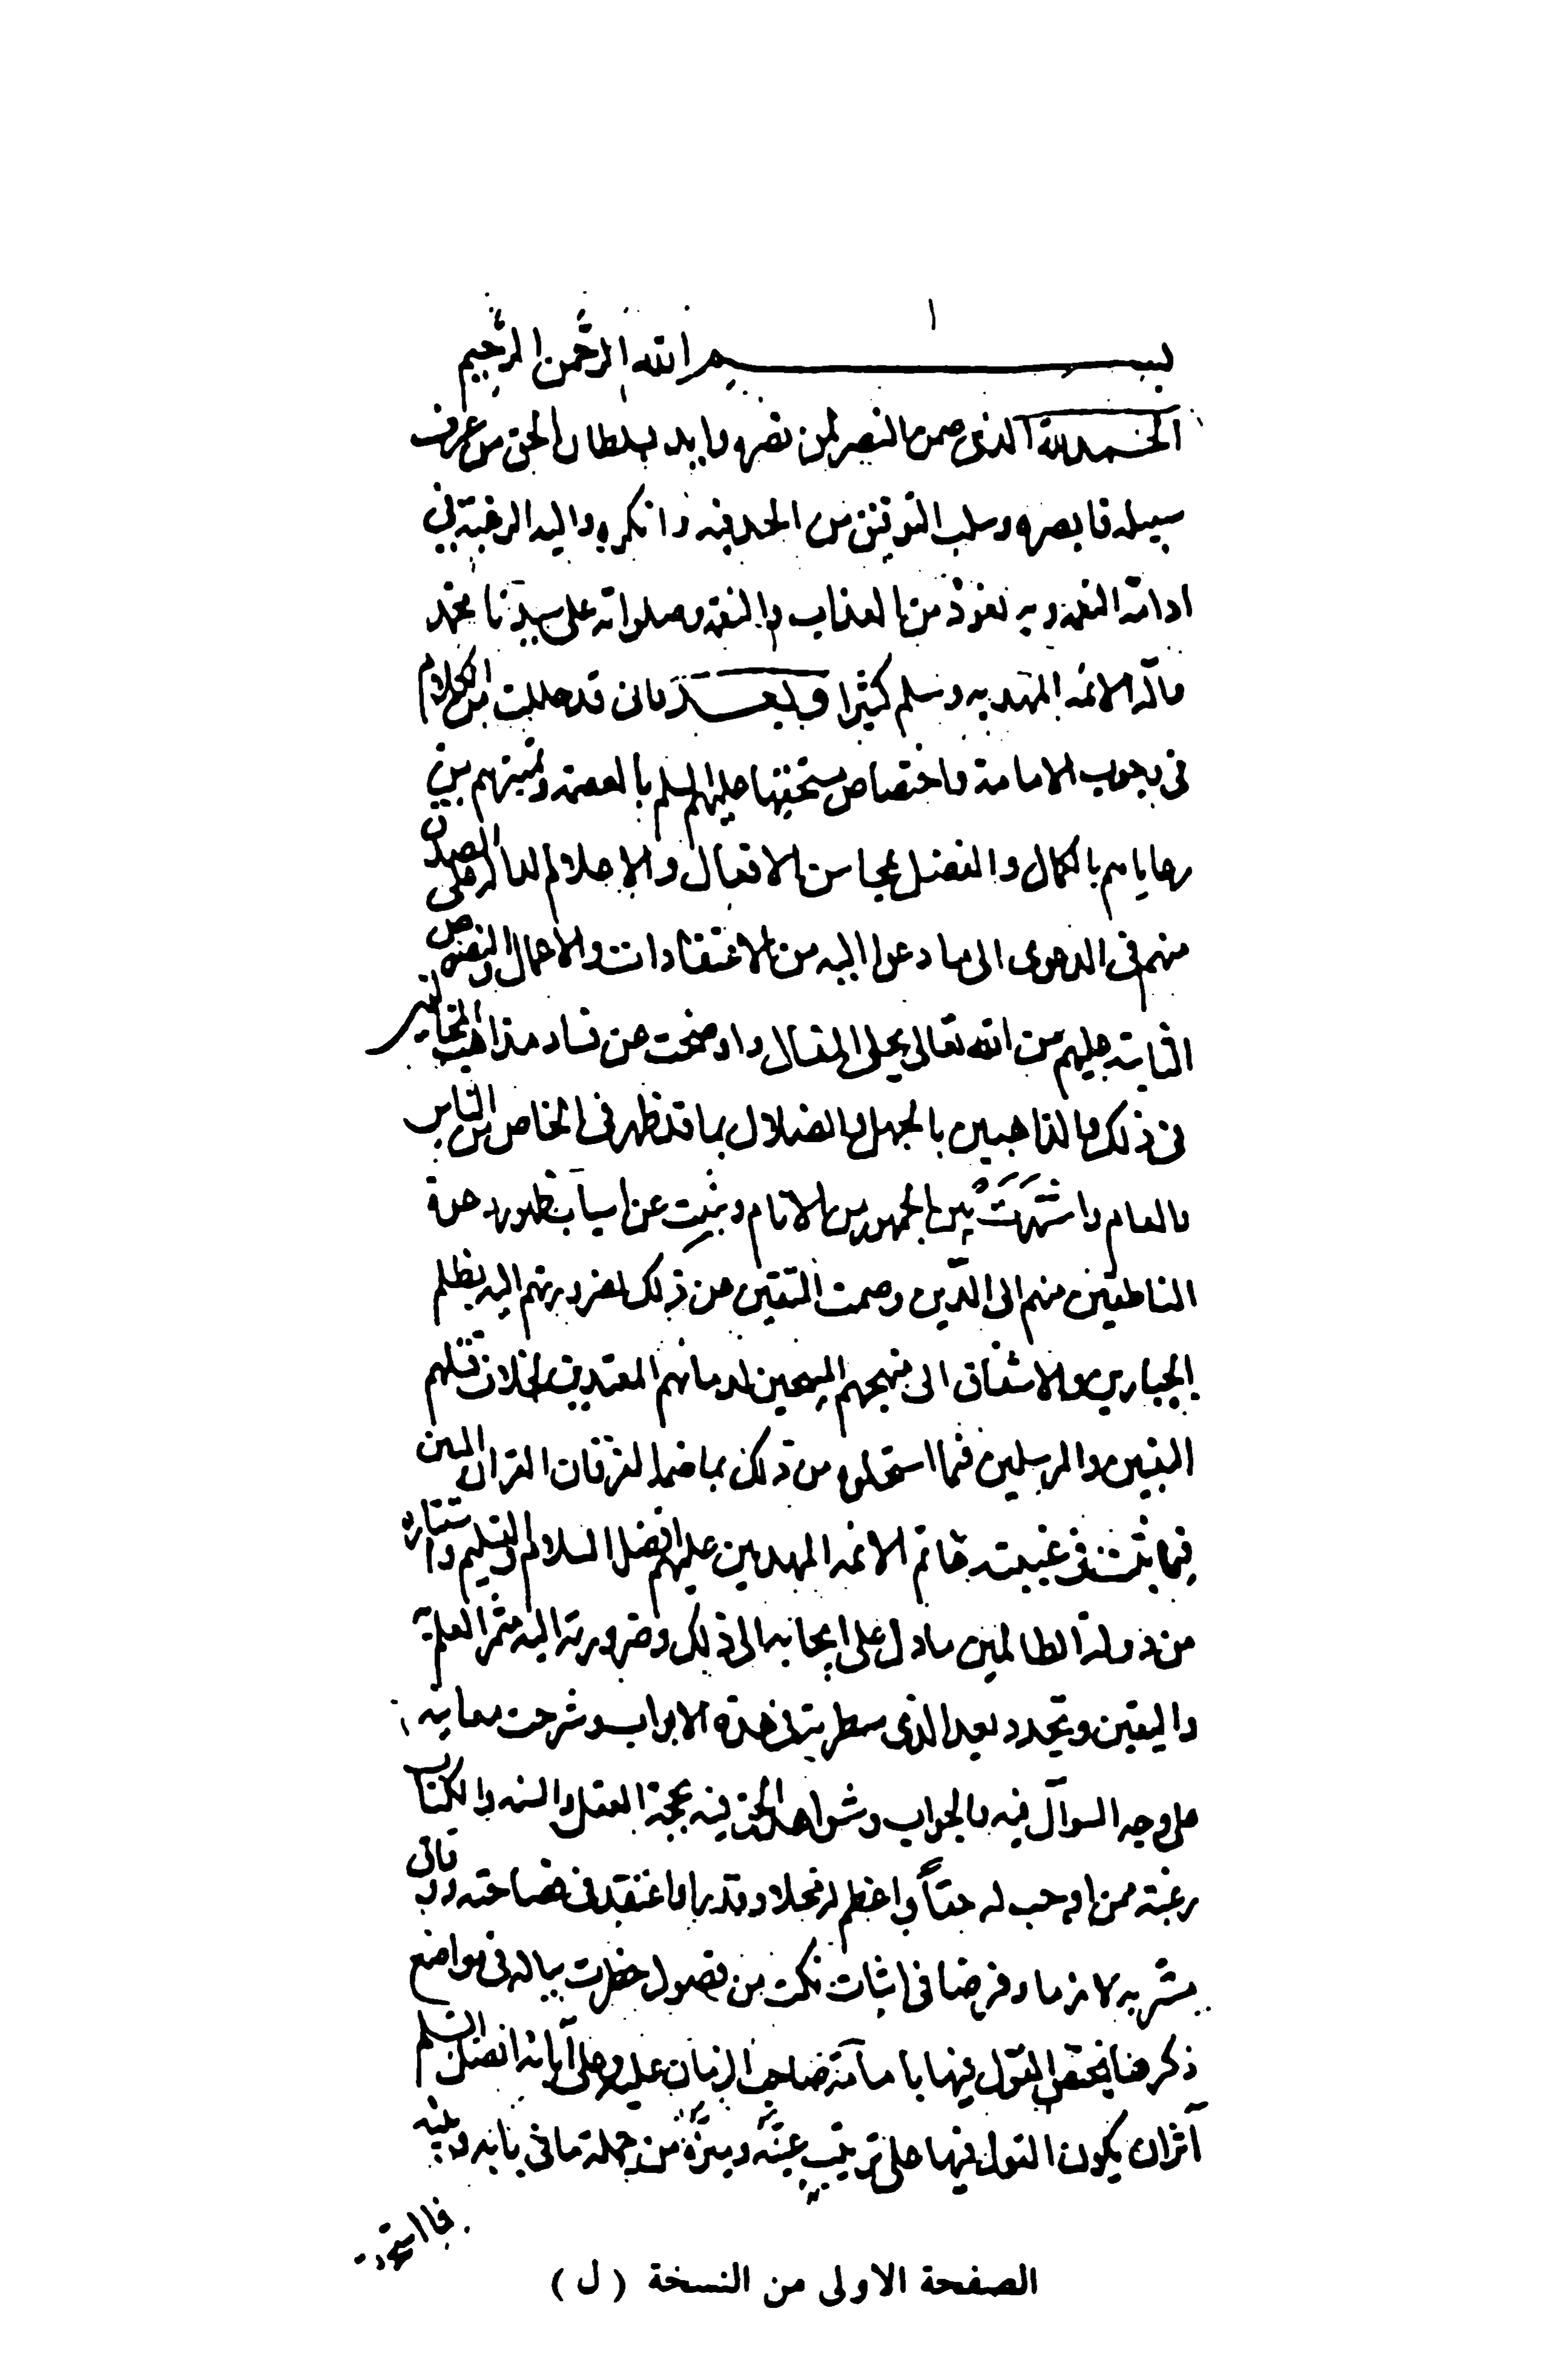 بسم الله الرحمن الرحيم
الحمد لله الذي ضمن النصر لمن نصره وايد بسلطان الحق من عرف
سبيله فابصره وسلب التوفيق من الحد فيه وانكره واليه الرغبة في
ادامة النعمة وبه نعوذ من العذاب والنقمة وصلواته على سيدنا محمد
وآله الائمة المهديه وسلم كثيرا وبعد فاني قد جللت من الكلام
في وجوب الامامة واختصاص مستحقيها عليهم السلم بالعصمة وتميزهم من
رعاياهم بالكمال والفضل بمحاسن الافعال والاعلام الدالة على الصدق
منهم في الدعوى الى ما دعوا اليه من الاعتقادات والاعمال والنصوص
الثابتة عليهم من الله تعالى بجلي المقال واوضحت عن فساد مذاهب المخالفين
في ذلك والذاهبين بالجهل والضلال بما قد ظهر في الخاص من الناس
والعام واشتهرت بين الجمهور من الانام وبينت عن اسباب ظهور دعوة
الناطقين منهم الى الدين وصمت المتقين عن ذلك لضرورتهم اليه بظلم
الجبارين والاشفاق الى مهجهم المبيحين لدمائهم المعتدين بخلاف قتلهم
النبيين والمرسلين فيما استحلوه من ذلك بما ضمنه الفرقان القرآن المبين
فيما ثبت في غيبة خاتم الائمة المهديين عليهم افضل السلام والتسليم واستتاره
من دولة الظالمين ما دل على ايجابه الى ذلك وضرورته اليه مثمر العلم به
واليقين وتجدد بعد الذي سطرته في هذه الابواب وشرحت معانيه
على وجه السوآل فيه والجواب وشواهد الحق فيه بحجة العقل والسنة والكتاب
رغبة ممن اوجب له حقاً واعظم له محلا وقدرا واعتقد في قضاء حقه ووفاق
مشربه لازما وفرضا في اثبات نكت من فصول خطرت بباله في مواضع
ذكرها يختص القول فيها بامامة صاحب الزمان عليه وعلى آبائه افضل السلم
آثر ان يكون القول فيها على ترتيب عينه وميزه من جملة ما في بابه وبينه
الصفحة الاولى من النسخة (ل)